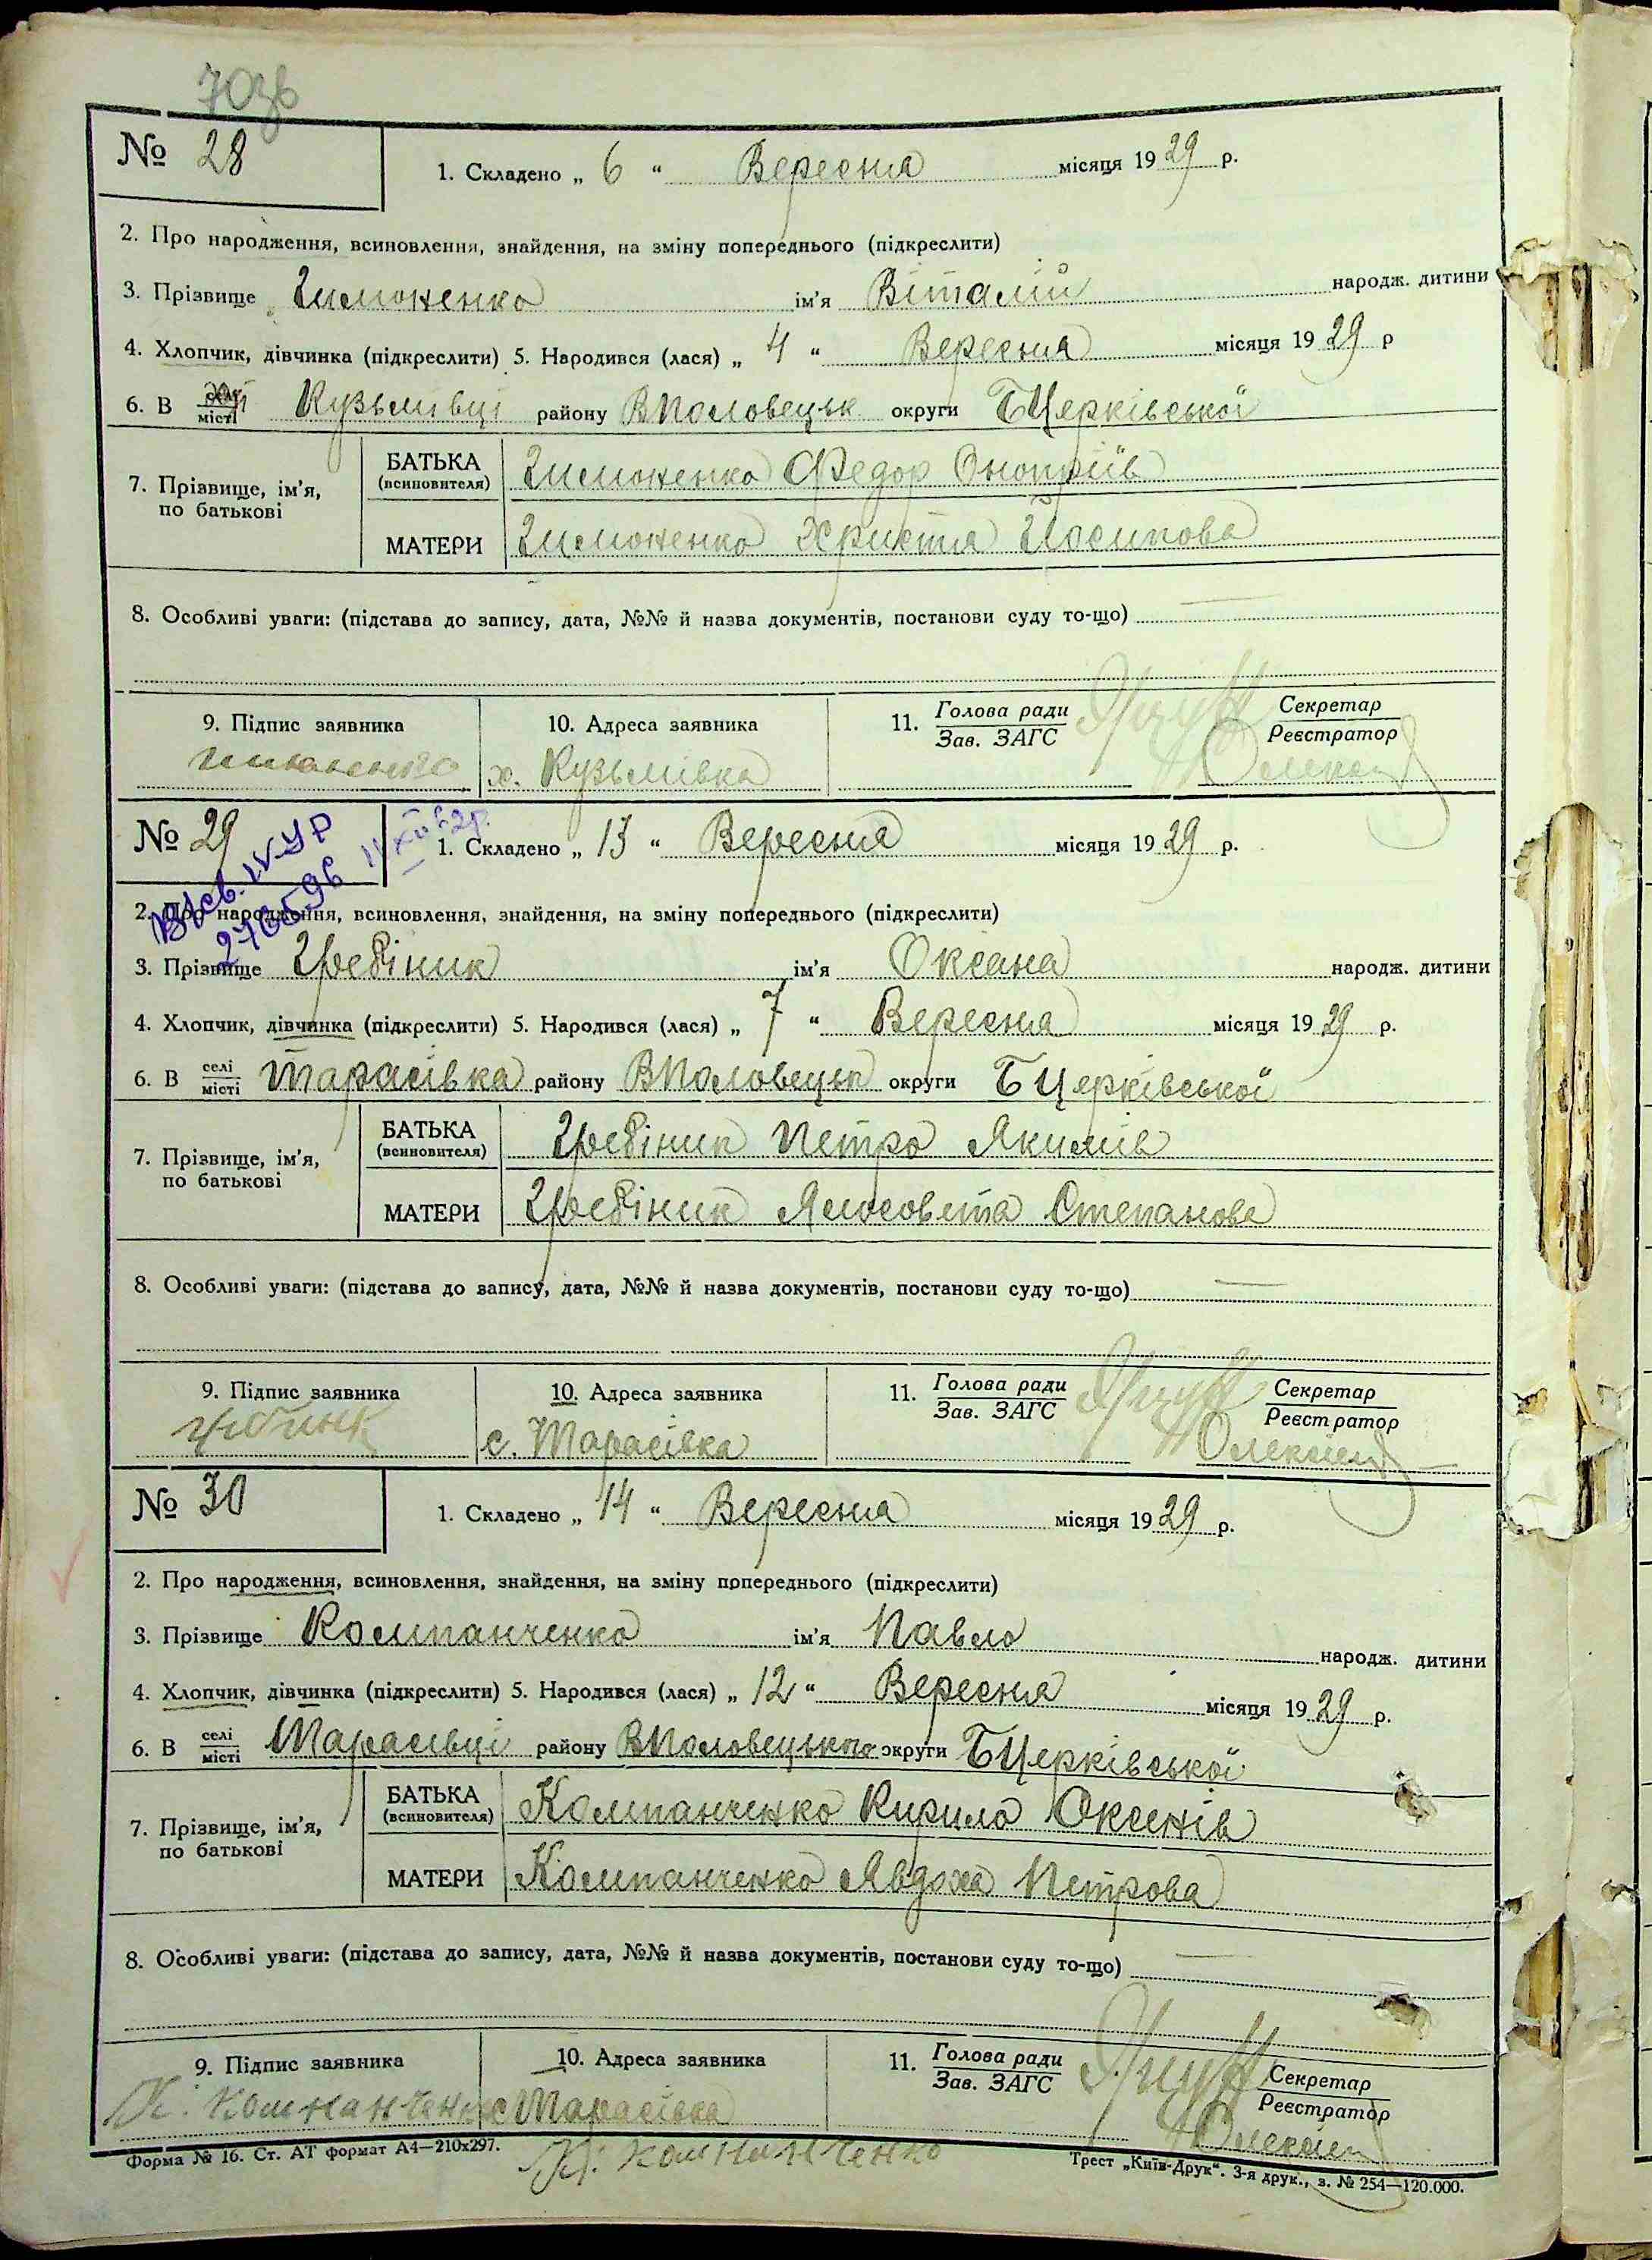 70зв
№ 28
1. Складено „ 6 “ Вересня місяця 1929 р.
2. Про народження, всиновлення, знайдення, на зміну попереднього (підкреслити)
3. Прізвище Тимоненко ім'я Віталій народж. дитини
4. Хлопчик, дівчинка (підкреслити) 5. Народився (лася) „ 4 “ Вересня місяця 1929 р
6. В місті Кузьмівці району ВПоловецьк округи БЦерківської
7. Прізвище, ім'я, по батькові
БАТЬКА (всиновителя) Тимоненко Федор Онопріїв
МАТЕРИ Тимоненко Христя Йосипова
8. Особливі уваги: (підстава до запису, дата, №№ й назва документів, постанови суду то-що)
9. Підпис заявника
10. Адреса заявника
11. Голова ради Зав. ЗАГС
Секретар Реєстратор
х. Кузьмівка
№ 29
1. Складено „ 13 “ Вересня місяця 1929 р.
2. Про народження, всиновлення, знайдення, на зміну попереднього (підкреслити)
3. Прізвище Гребіник ім'я Оксана народж. дитини
4. Хлопчик, дівчинка (підкреслити) 5. Народився (лася) „ 7 “ Вересня місяця 1929 р.
6. В селі місті Тарасівка району ВПоловецьк округи БЦерківської
7. Прізвище, ім'я, по батькові
БАТЬКА (всиновителя) Гребіник Петро Якимів
МАТЕРИ Гребіник Ялосовета Степанова
8. Особливі уваги: (підстава до запису, дата, №№ й назва документів, постанови суду то-що)
9. Підпис заявника
10. Адреса заявника
11. Голова ради Зав. ЗАГС
Секретар Реєстратор
с. Тарасівка
№ 30
1. Складено „ 14 “ Вересня місяця 1929 р.
2. Про народження, всиновлення, знайдення, на зміну попереднього (підкреслити)
3. Прізвище Компанченко ім'я Павло народж. дитини
4. Хлопчик, дівчинка (підкреслити) 5. Народився (лася) „ 12 “ Вересня місяця 1929 р.
6. В селі місті Тарасівці району ВПоловецького округи БЦерківської
7. Прізвище, ім'я, по батькові
БАТЬКА (всиновителя) Компанченко Кирило Оксенів
МАТЕРИ Компанченко Явдоха Петрова
8. Особливі уваги: (підстава до запису, дата, №№ й назва документів, постанови суду то-що)
9. Підпис заявника
10. Адреса заявника
11. Голова ради Зав. ЗАГС
Секретар Реєстратор
К. Компанченко с Тарасівка
К. Компанченко
Форма № 16. Ст. АТ формат А4—210х297.
Трест „Київ-Друк“. 3-я друк., з. № 254—120.000.